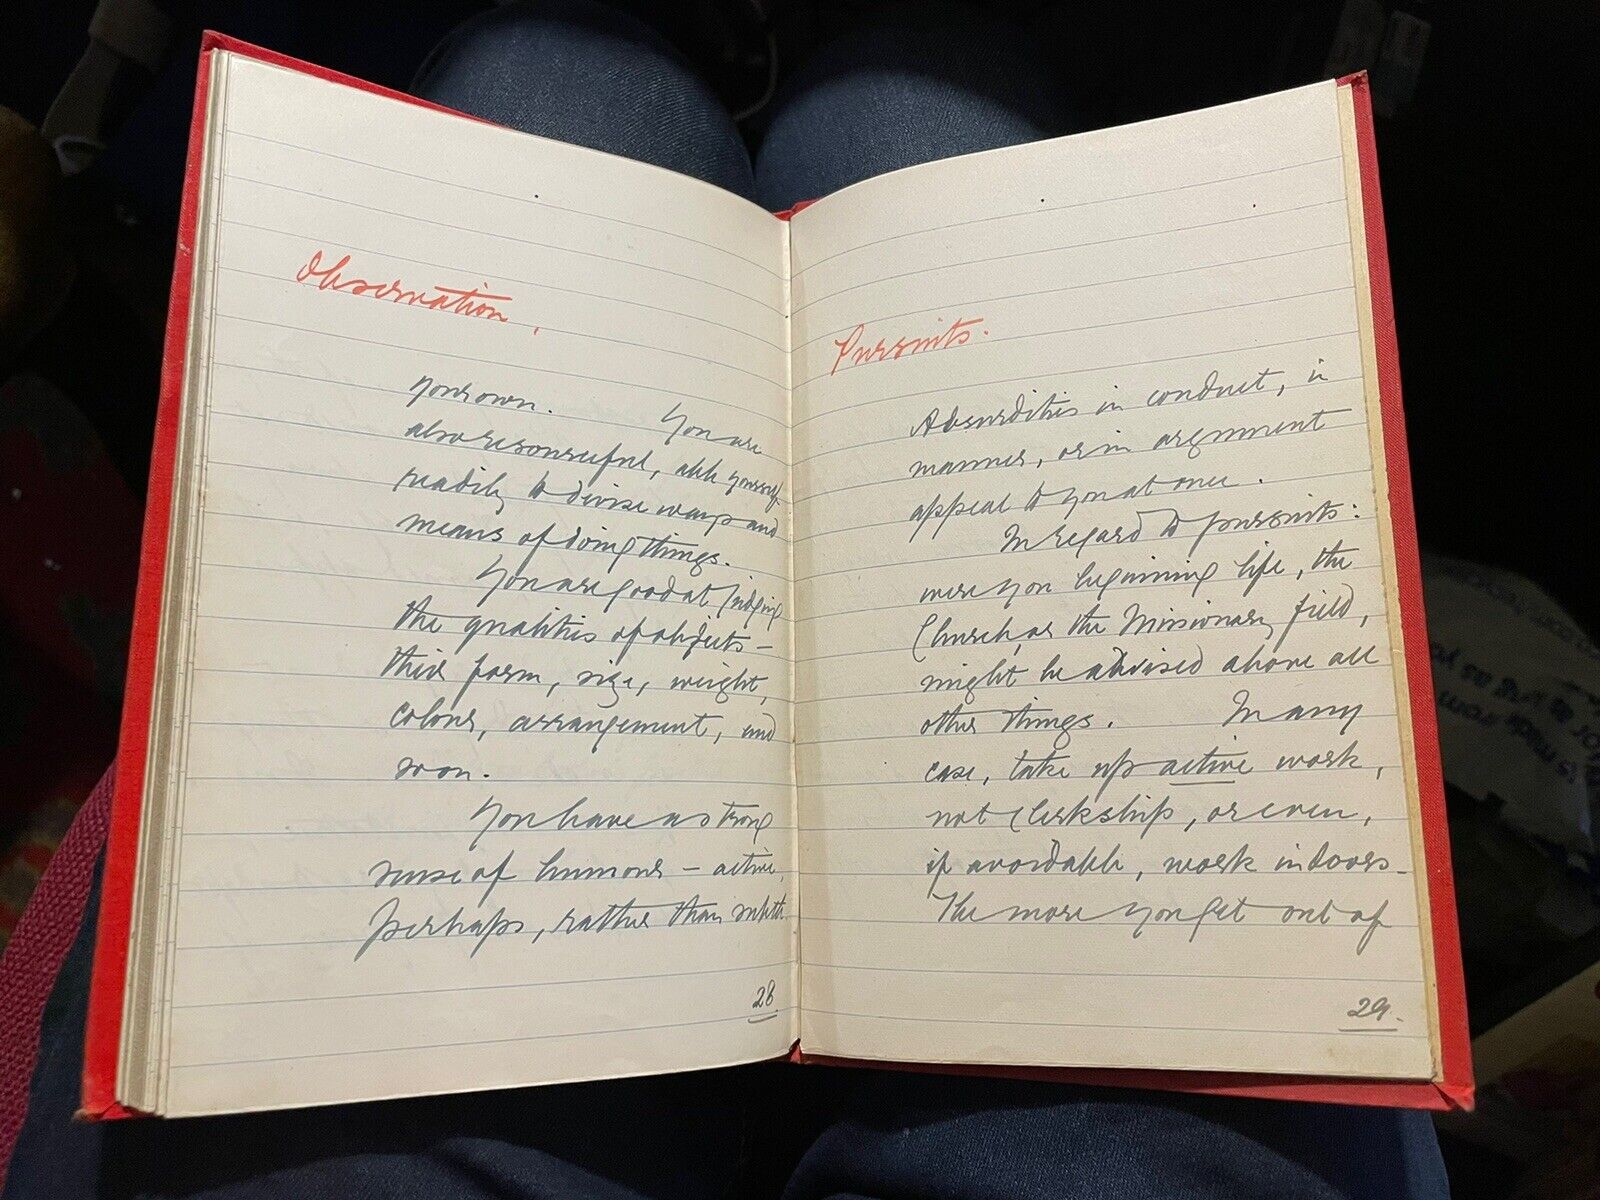 Observation,
your own. You are
also resourceful, able yourself
readily to devise ways and
means of doing things.
You are good at judging
the qualities of objects –
their form, size, weight,
colour, arrangement, and
so on.
You have a strong
sense of humour – active,
perhaps, rather than subtle.
28
Pursuits.
Absurdities in conduct, in
manner, or in argument
appeal to you at once.
In regard to pursuits:
were you beginning life, the
Church, or the Missionary field,
might be advised above all
other things. In any
case, take up active work,
not clerkship, or even,
if avoidable, work indoors.
The more you get out of
29.